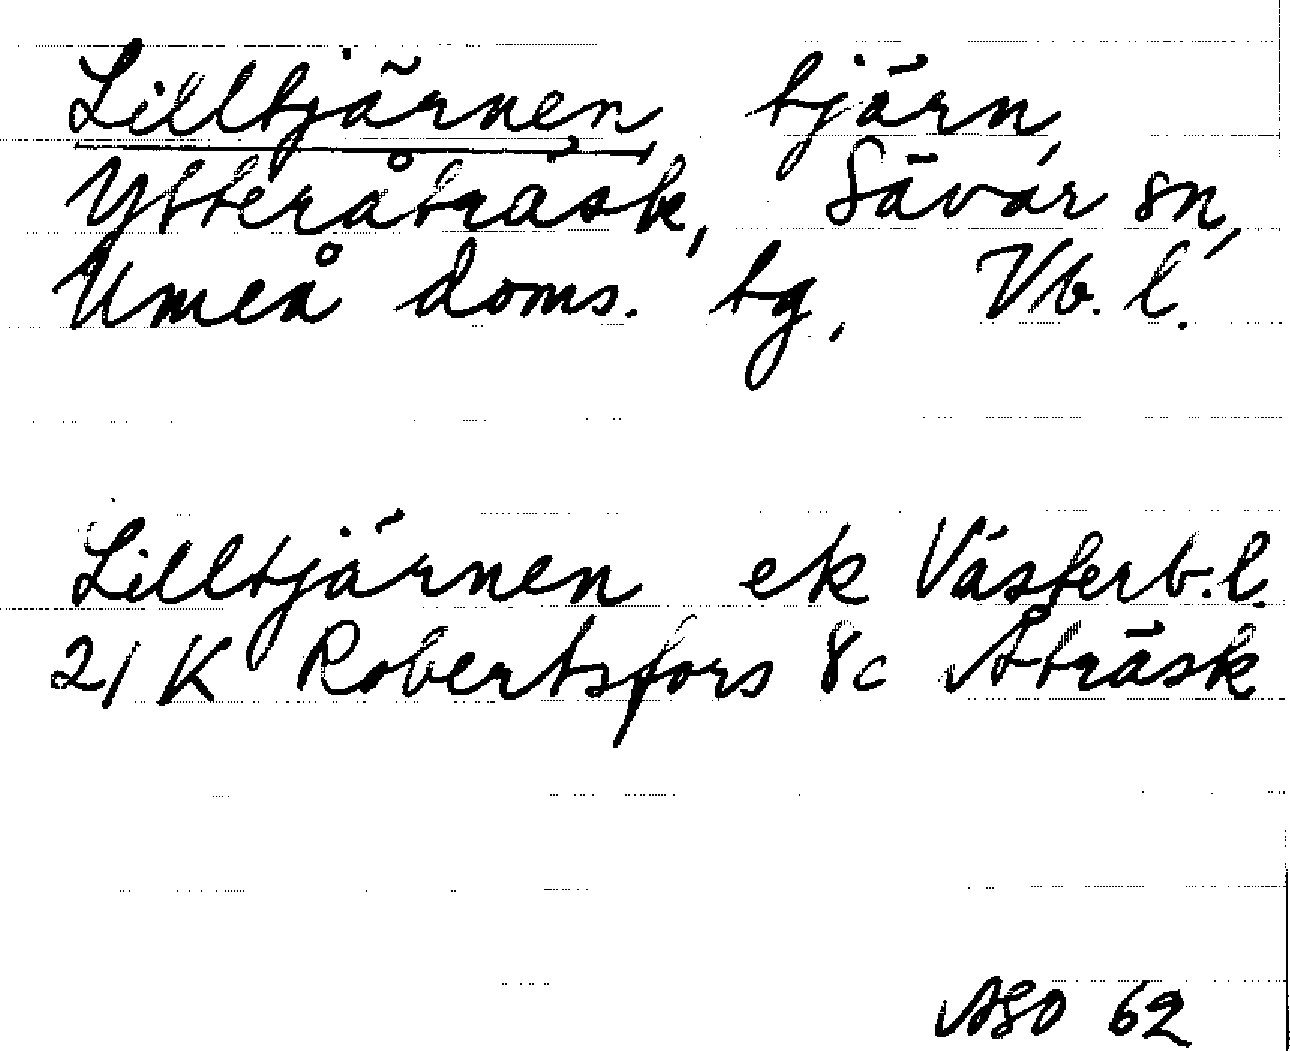 Lilltjärnen, tjärn,
Ytteråträsk, Sävar sn,
Umeå doms. tg, Vb. l.
Lilltjärnen ek Västerb.l.
21 K Robertsfors 8c Åträsk
ASO 62